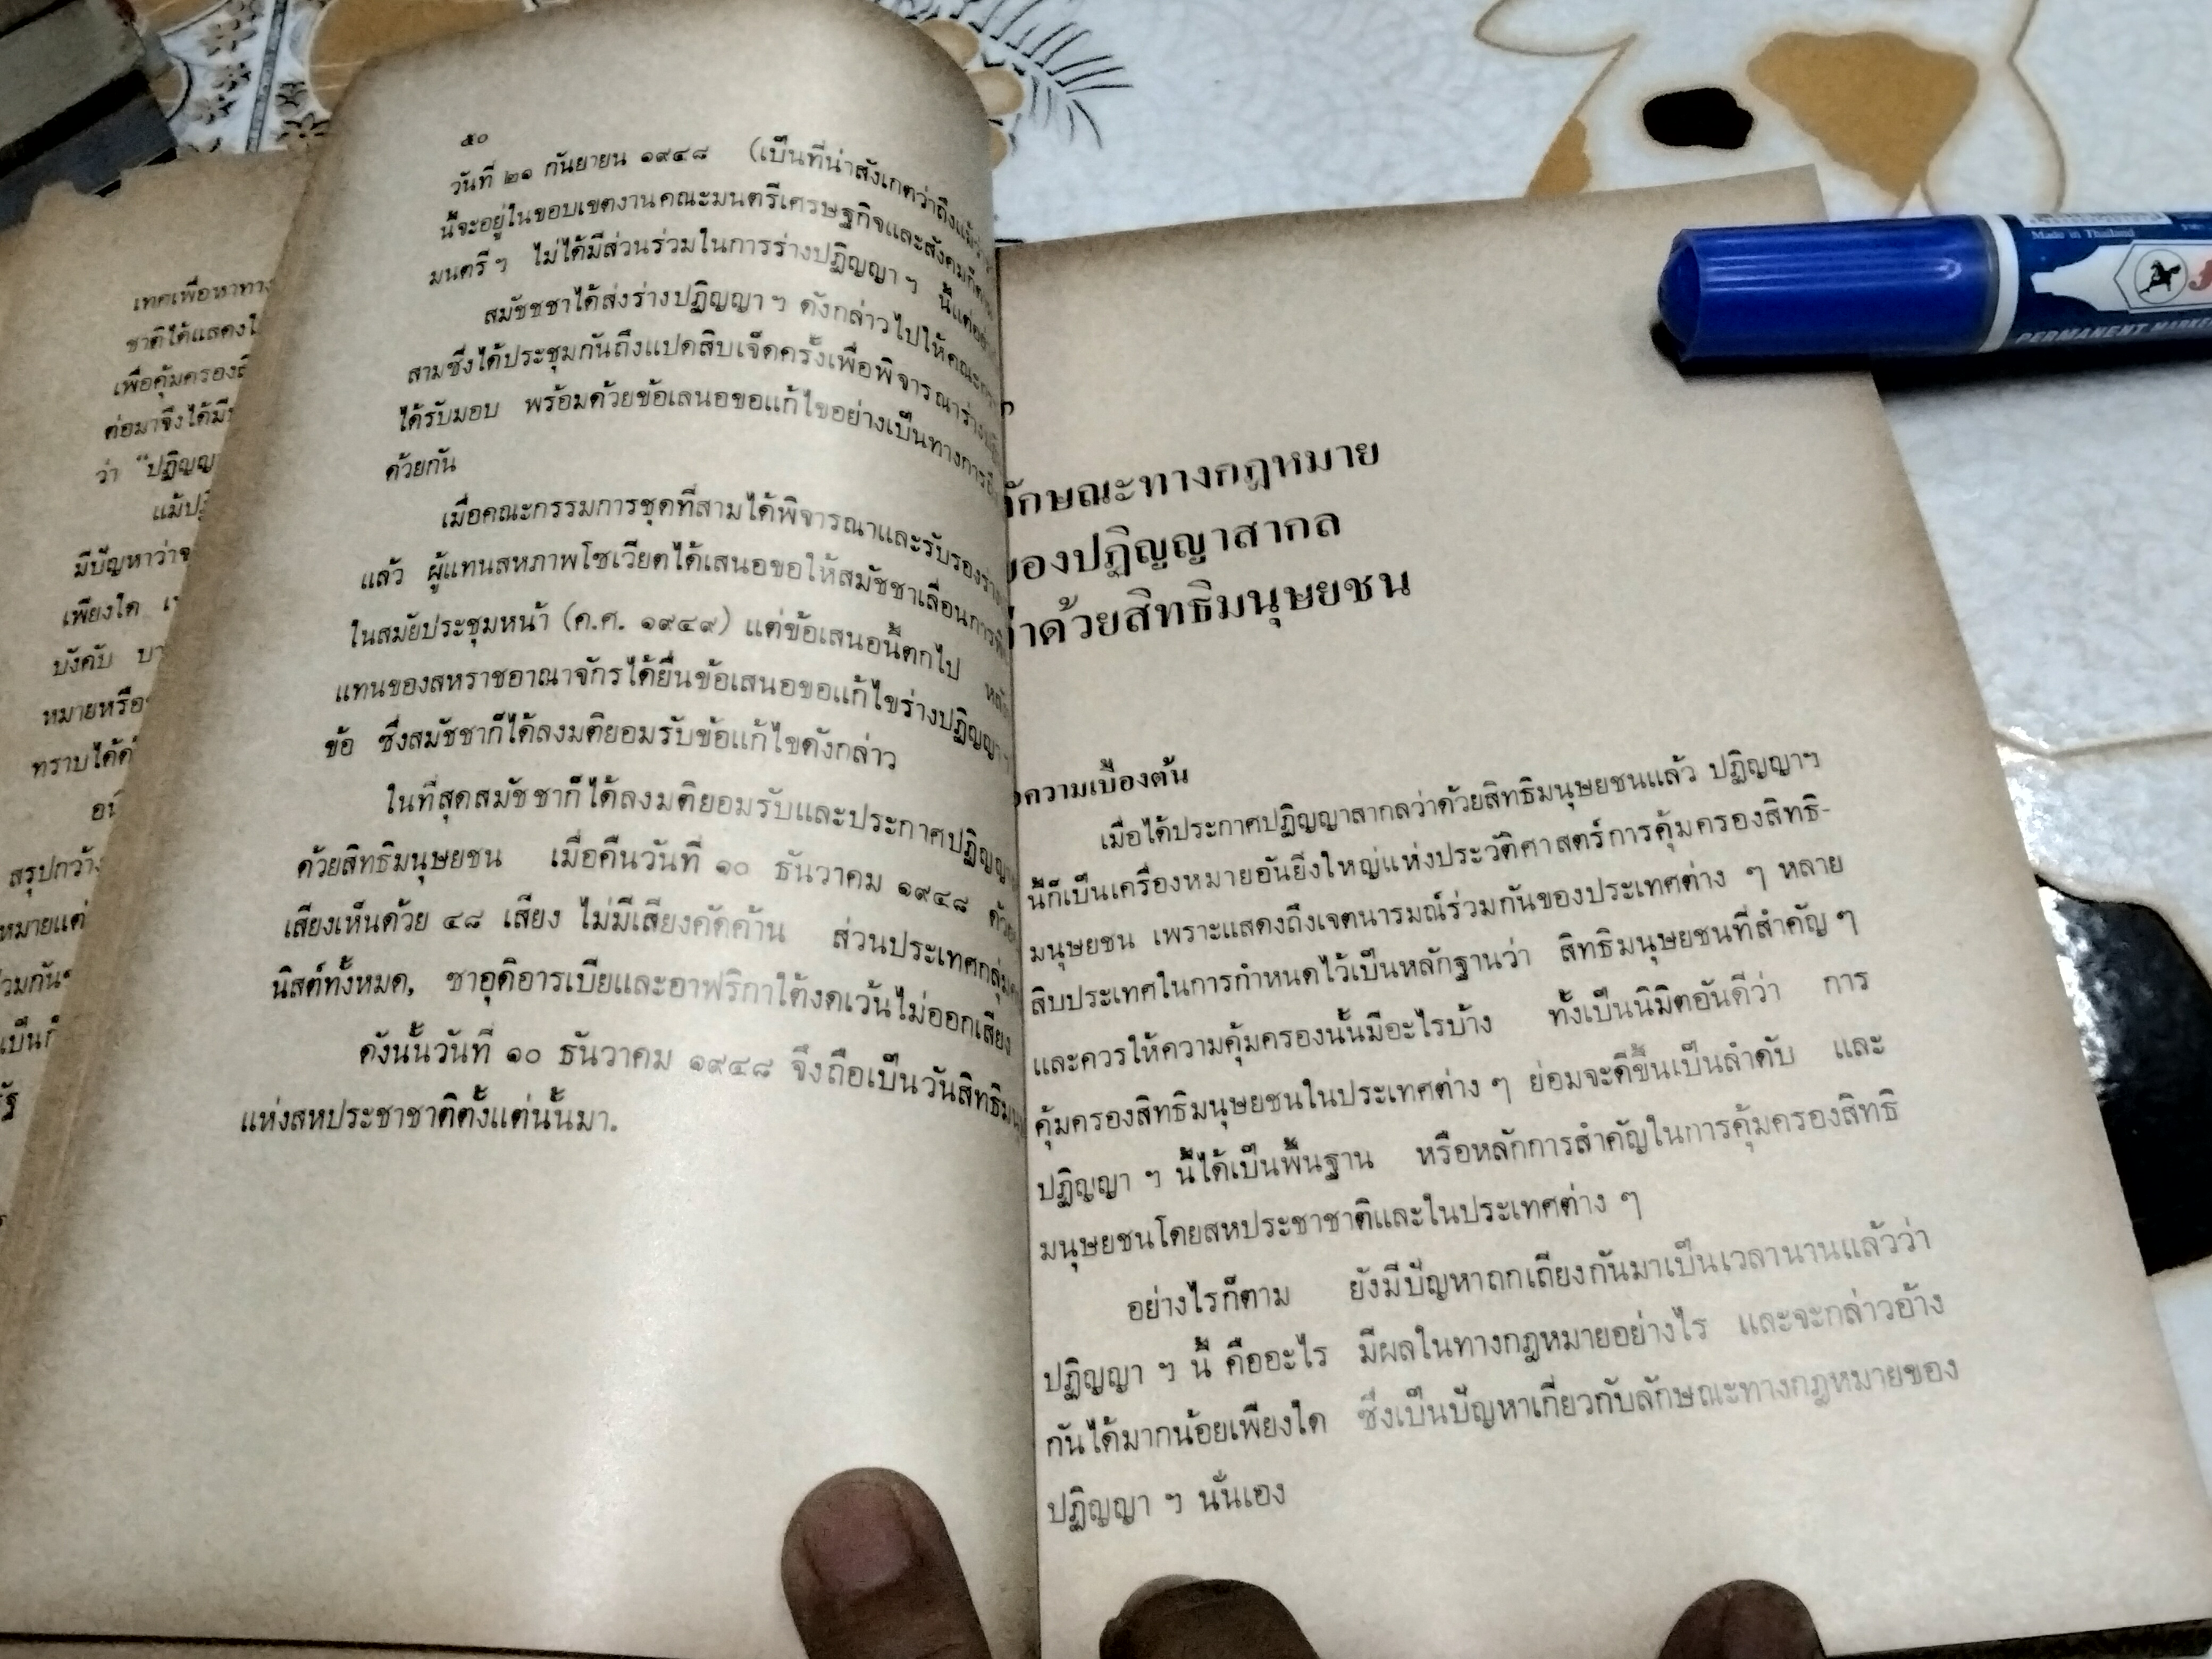 เทศเพื่อหาทาง
ชาติได้แสดง
เพื่อคุ้มครอง
ต่อมาจึงได้มี
ว่า “ปฏิญญ
แม้
มีปัญหาว่า
เพียงใด
บังคับ
หมายหรือ
ทราบได้
สรุปกว้าง
หมายแต่
๕๐
วันที่ ๒๑ กันยายน ๑๙๔๘ (เป็นที่น่าสังเกตว่าถึงแม้
นี้จะอยู่ในขอบเขตงานคณะมนตรีเศรษฐกิจและสังคมก็ตาม
มนตรี ฯ ไม่ได้มีส่วนร่วมในการร่างปฏิญญา ฯ นี้แต่
สมัชชชาได้ส่งร่างปฏิญญา ฯ ดังกล่าวไปให้คณะ
สามซึ่งได้ประชุมกันถึงแปดสิบเจ็ดครั้งเพื่อพิจารณาร่าง
ได้รับมอบ พร้อมด้วยข้อเสนอขอแก้ไขอย่างเป็นทางการ
ด้วยกัน
เมื่อคณะกรรมการชุดที่สามได้พิจารณาและรับรองร่าง
แล้ว ผู้แทนสหภาพโซเวียตได้เสนอขอให้สมัชชาเลื่อนการ
ในสมัยประชุมหน้า (ค.ศ. ๑๙๔๙) แต่ข้อเสนอนี้ตกไป
แทนของสหราชอาณาจักรได้ยื่นข้อเสนอขอแก้ไขร่างปฏิญญา
ข้อ ซึ่งสมัชชาก็ได้ลงมติยอมรับข้อแก้ไขดังกล่าว
ในที่สุดสมัชชาก็ได้ลงมติยอมรับและประกาศปฏิญญ
ด้วยสิทธิมนุษยชน เมื่อคืนวันที่ ๑๐ ธันวาคม ๑๙๔๘ ด้วย
เสียงเห็นด้วย ๔๘ เสียง ไม่มีเสียงคัดค้าน ส่วนประเทศกลุ่ม
นิสต์ทั้งหมด, ซาอุดิอารเบียและอาฟริกาใต้งดเว้นไม่ออกเสียง
ดังนั้นวันที่ ๑๐ ธันวาคม ๑๙๔๘ จึงถือเป็นวันสิทธิม
แห่งสหประชาชาติตั้งแต่นั้นมา.
ักษณะทางกฎหมาย
ของปฏิญญาสากล
ว่าด้วยสิทธิมนุษยชน
ความเบื้องต้น
เมื่อได้ประกาศปฏิญญาสากลว่าด้วยสิทธิมนุษยชนแล้ว ปฏิญญาฯ
นี้ก็เป็นเครื่องหมายอันยิ่งใหญ่แห่งประวัติศาสตร์การคุ้มครองสิทธิ-
มนุษยชน เพราะแสดงถึงเจตนารมณ์ร่วมกันของประเทศต่าง ๆ หลาย
สิบประเทศในการกำหนดไว้เป็นหลักฐานว่า สิทธิมนุษยชนที่สำคัญ ๆ
และควรให้ความคุ้มครองนั้นมีอะไรบ้าง ทั้งเป็นนิมิตอันดีว่า การ
คุ้มครองสิทธิมนุษยชนในประเทศต่าง ๆ ย่อมจะดีขึ้นเป็นลำดับ และ
ปฏิญญา ฯ นี้ได้เป็นพื้นฐาน หรือหลักการสำคัญในการคุ้มครองสิทธิ
มนุษยชนโดยสหประชาชาติและในประเทศต่าง ๆ
อย่างไรก็ตาม ยังมีปัญหาถกเถียงกันมาเป็นเวลานานแล้วว่า
ปฏิญญา ฯ นี้ คืออะไร มีผลในทางกฎหมายอย่างไร และจะกล่าวอ้าง
กันได้มากน้อยเพียงใด ซึ่งเป็นปัญหาเกี่ยวกับลักษณะทางกฎหมายของ
ปฏิญญา ฯ นั่นเอง
Made in Thailand
PERMANENT MARKE